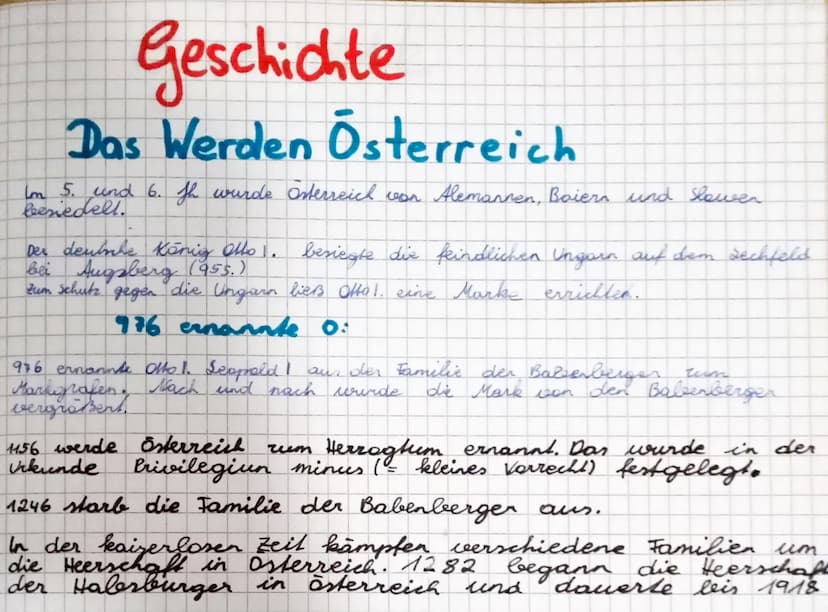 Geschichte
Das Werden Österreich
Im 5. und 6. Jh wurde Österreich von Alemannen, Baiern und Slawen
besiedelt.
Der deutsche König Otto I. besiegte die feindlichen Ungarn auf dem Lechfeld
bei Augsberg (955.)
Zum Schutz gegen die Ungarn ließ Otto I. eine Marke errichten.
976 ernannte O:
976 ernannte Otto I. Leopold I aus der Familie der Babenberger zum
Markgrafen. Nach und nach wurde die Mark von den Babenberger
vergrößert.
1156 werde Österreich zum Herzogtum ernannt. Das wurde in der
Urkunde Privilegiun minus (= kleines Vorrecht) festgelegt.
1246 starb die Familie der Babenberger aus.
In der kaiserlosen Zeit kämpfen verschiedene Familien um
die Heerschaft in Österreich. 1282 begann die Heerschaft
der Habsburger in österreich und dauerte bis 1918